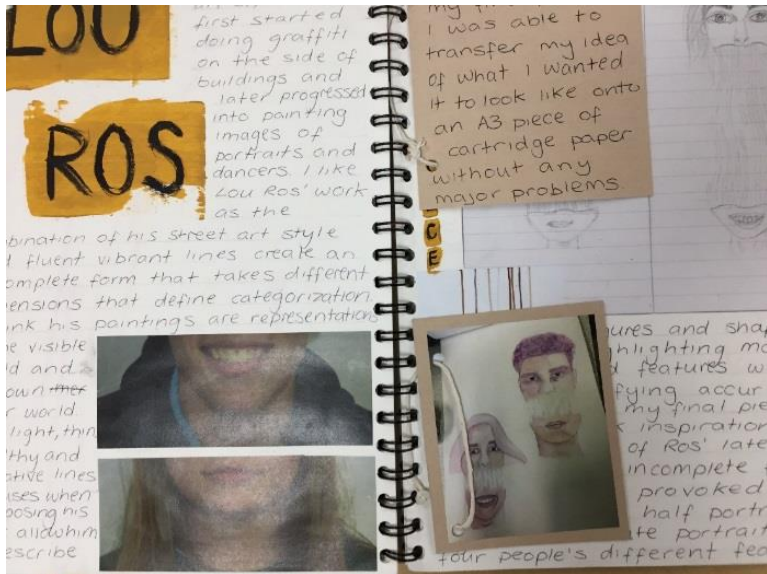 LOU
ROS
first started
doing graffiti
on the side of
buildings and
later progressed
into painting
images of
portraits and
dancers. I like
Lou Ros' work
as the
bination of his street art style
fluent vibrant lines create an
omplete form that takes different
ensions that define categorization.
nk his paintings are representations
visible
ld and
own
r world
light, thin
thy and
ative lines
uses when
posing his
allow him
escribe
I was able to
transfer my idea
of what I wanted
it to look like onto
an A3 piece of
cartridge paper
without any
major problems.
C
E
ures and shap
ghlighting mo
d features w
fying accur
my final pie
k inspiration
of Ros' late
incomplete
provoked
half portr
te portrait
four people's different fea